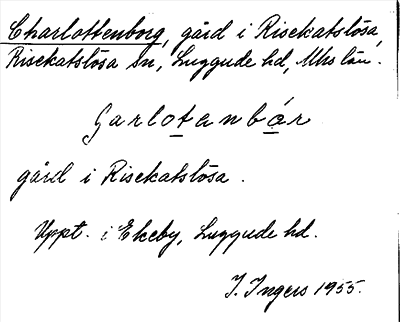 Charlottenborg, gård i Risekatslösa,
Risekatslösa sn, Luggude hd, Mhs län.
Garlotanbár
gård i Risekatslösa.
Uppt. i Ekeby, Luggude hd.
I. Ingers 1955.